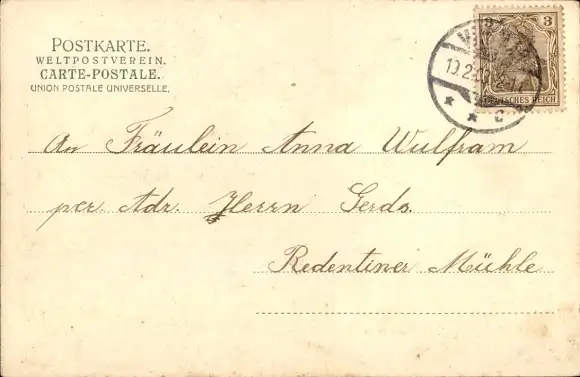 POSTKARTE.
WELTPOSTVEREIN.
CARTE-POSTALE.
UNION POSTALE UNIVERSELLE.
3 3
DEUTSCHES REICH
An Fräulein Anna Wulfram
per. Adr. Herrn Gerds.
Redentiner Mühle